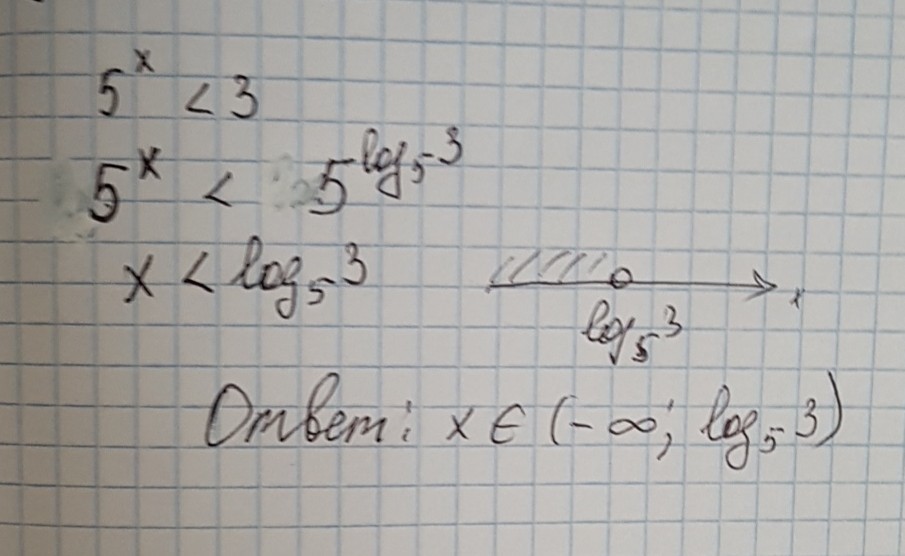 5^x < 3
5^x < 5^{log_5 3}
x < log_5 3
x
log_5 3
Ответ: x ∈ (-∞; log_5 3)